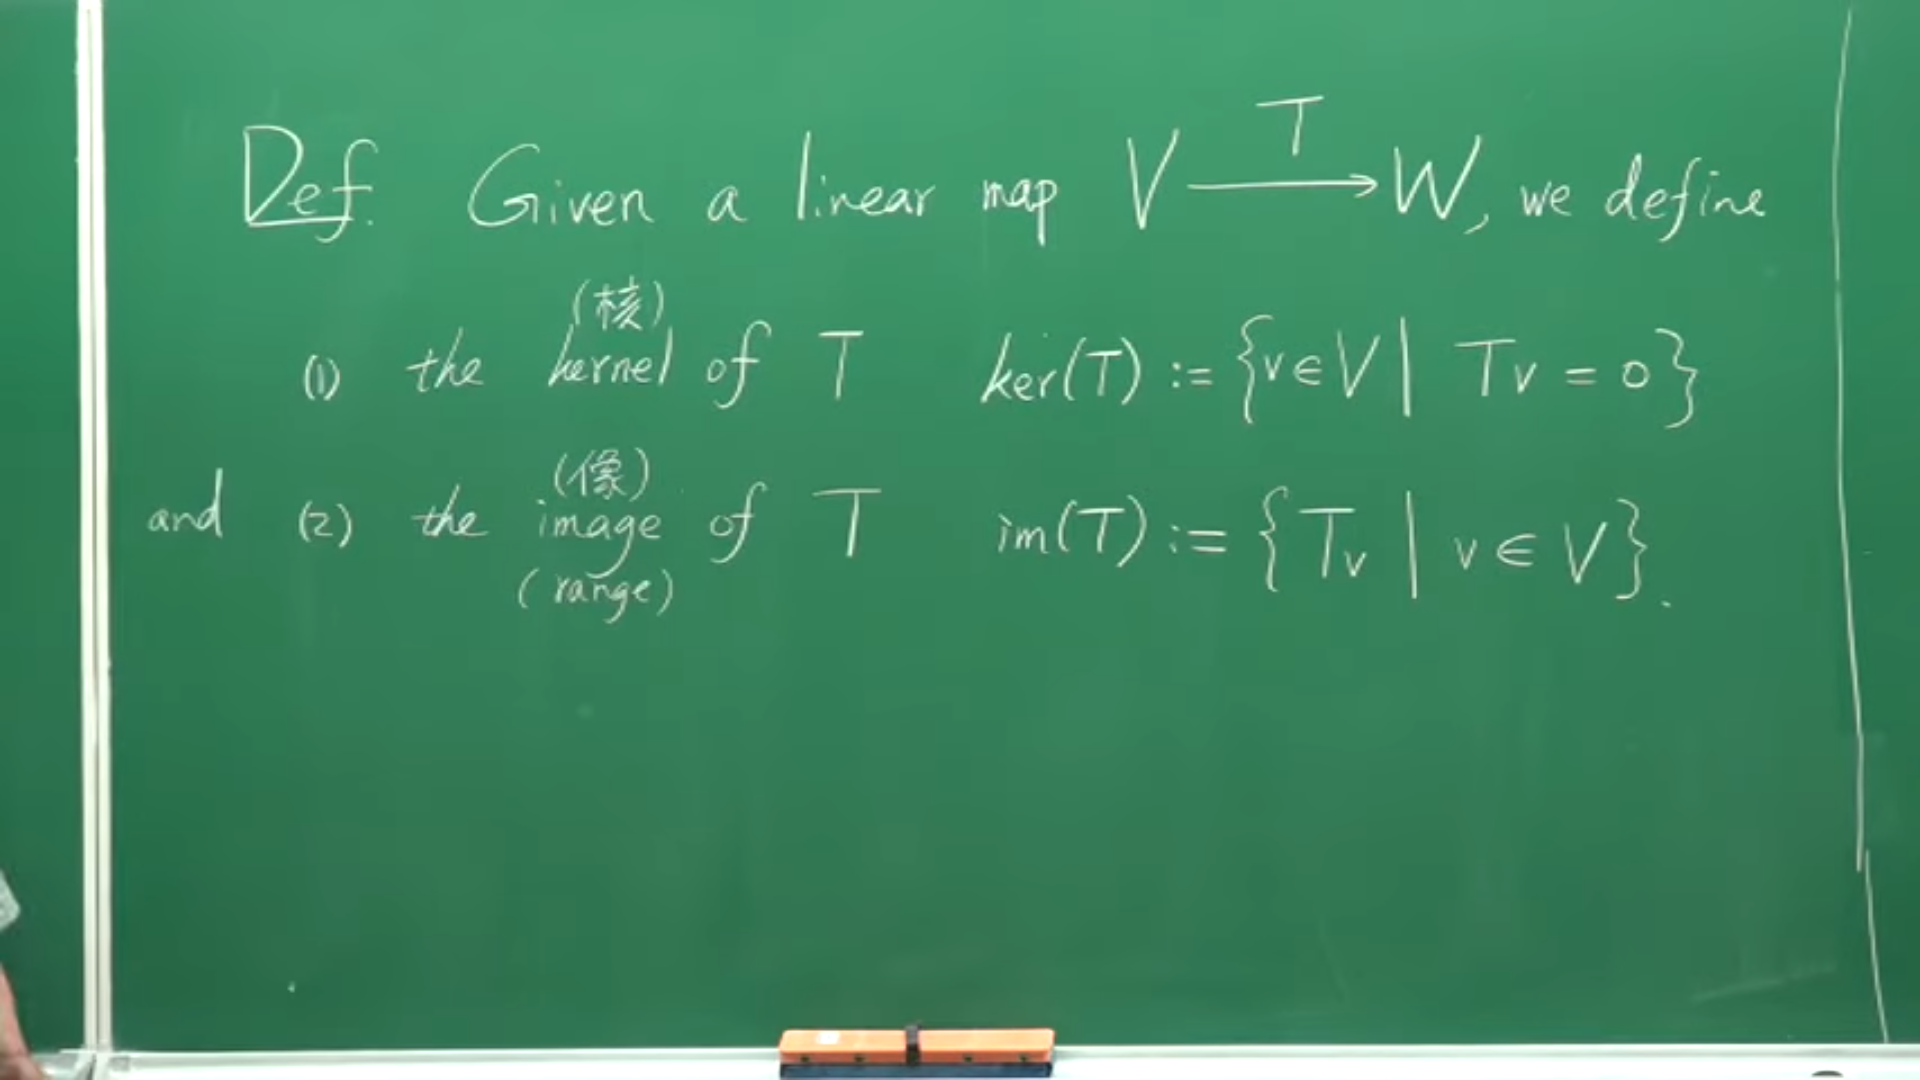 Def. Given a linear map V \xrightarrow{T} W, we define
(核)
(1) the kernel of T ker(T) := {v ∈ V | Tv = 0}
(像)
and (2) the image of T im(T) := {Tv | v ∈ V}.
(range)